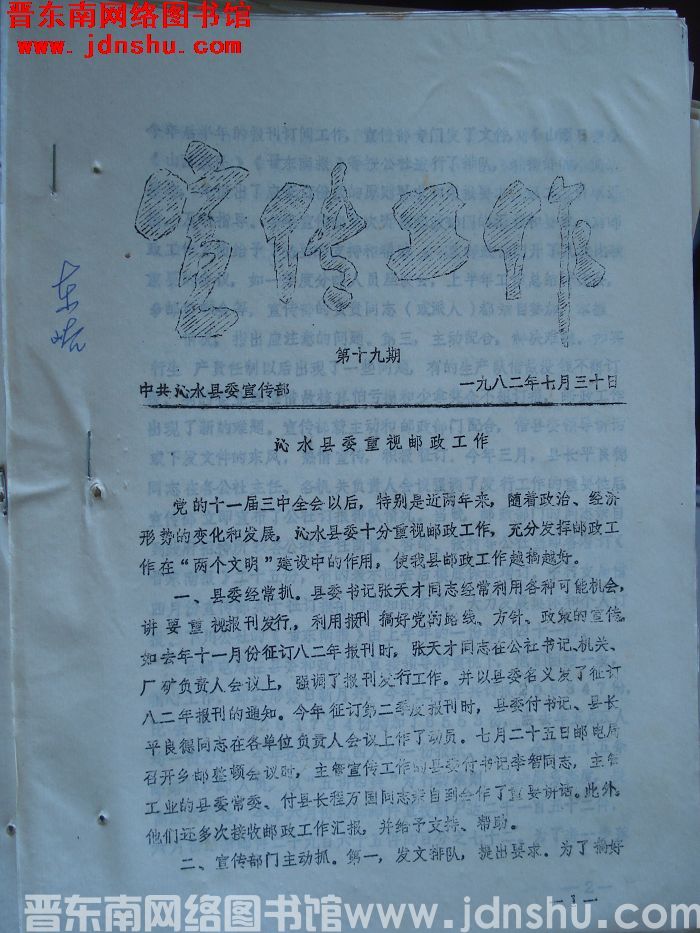 晋东南网络图书馆
www.jdnshu.com
宣传工作
第十九期
中共沁水县委宣传部
一九八二年七月三十日
沁水县委重视邮政工作
党的十一届三中全会以后，特别是近两年来，随着政治、经济
形势的变化和发展，沁水县委十分重视邮政工作，充分发挥邮政工
作在“两个文明”建设中的作用，使我县邮政工作越搞越好。
一、县委经常抓。县委书记张天才同志经常利用各种可能机会，
讲要重视报刊发行，利用报刊搞好党的路线、方针、政策的宣传。
如去年十一月份征订八二年报刊时，张天才同志在公社书记、机关、
厂矿负责人会议上，强调了报刊发行工作。并以县委名义发了征订
八二年报刊的通知。今年征订第二季度报刊时，县委付书记、县长
平良德同志在各单位负责人会议上作了动员。七月二十五日邮电局
召开乡邮整顿会议时，主管宣传工作的县委付书记李智同志，主管
工业的县委常委、付县长程万国同志亲自到会作了重要讲话。此外，
他们还多次接收邮政工作汇报，并给予支持、帮助。
二、宣传部门主动抓。第一，发文排队，提出要求。为了搞好
—1—
晋东南网络图书馆www.jdnshu.com